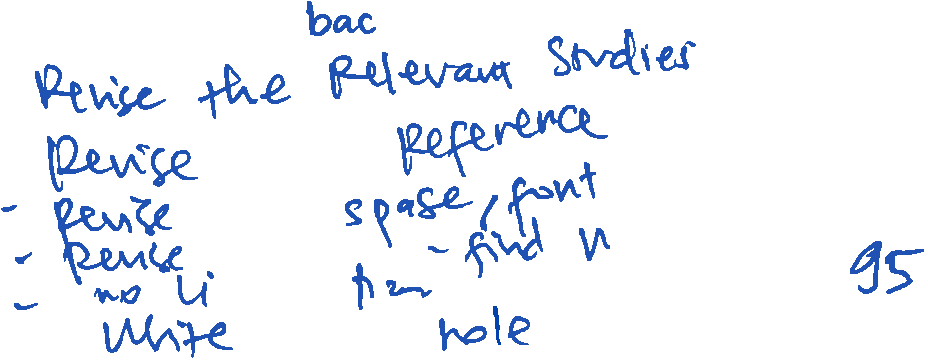 bac
Revise the Relevant Studies
Revise Reference
- Revise spase, font
- Revise - find n
- no Li
White hole
95